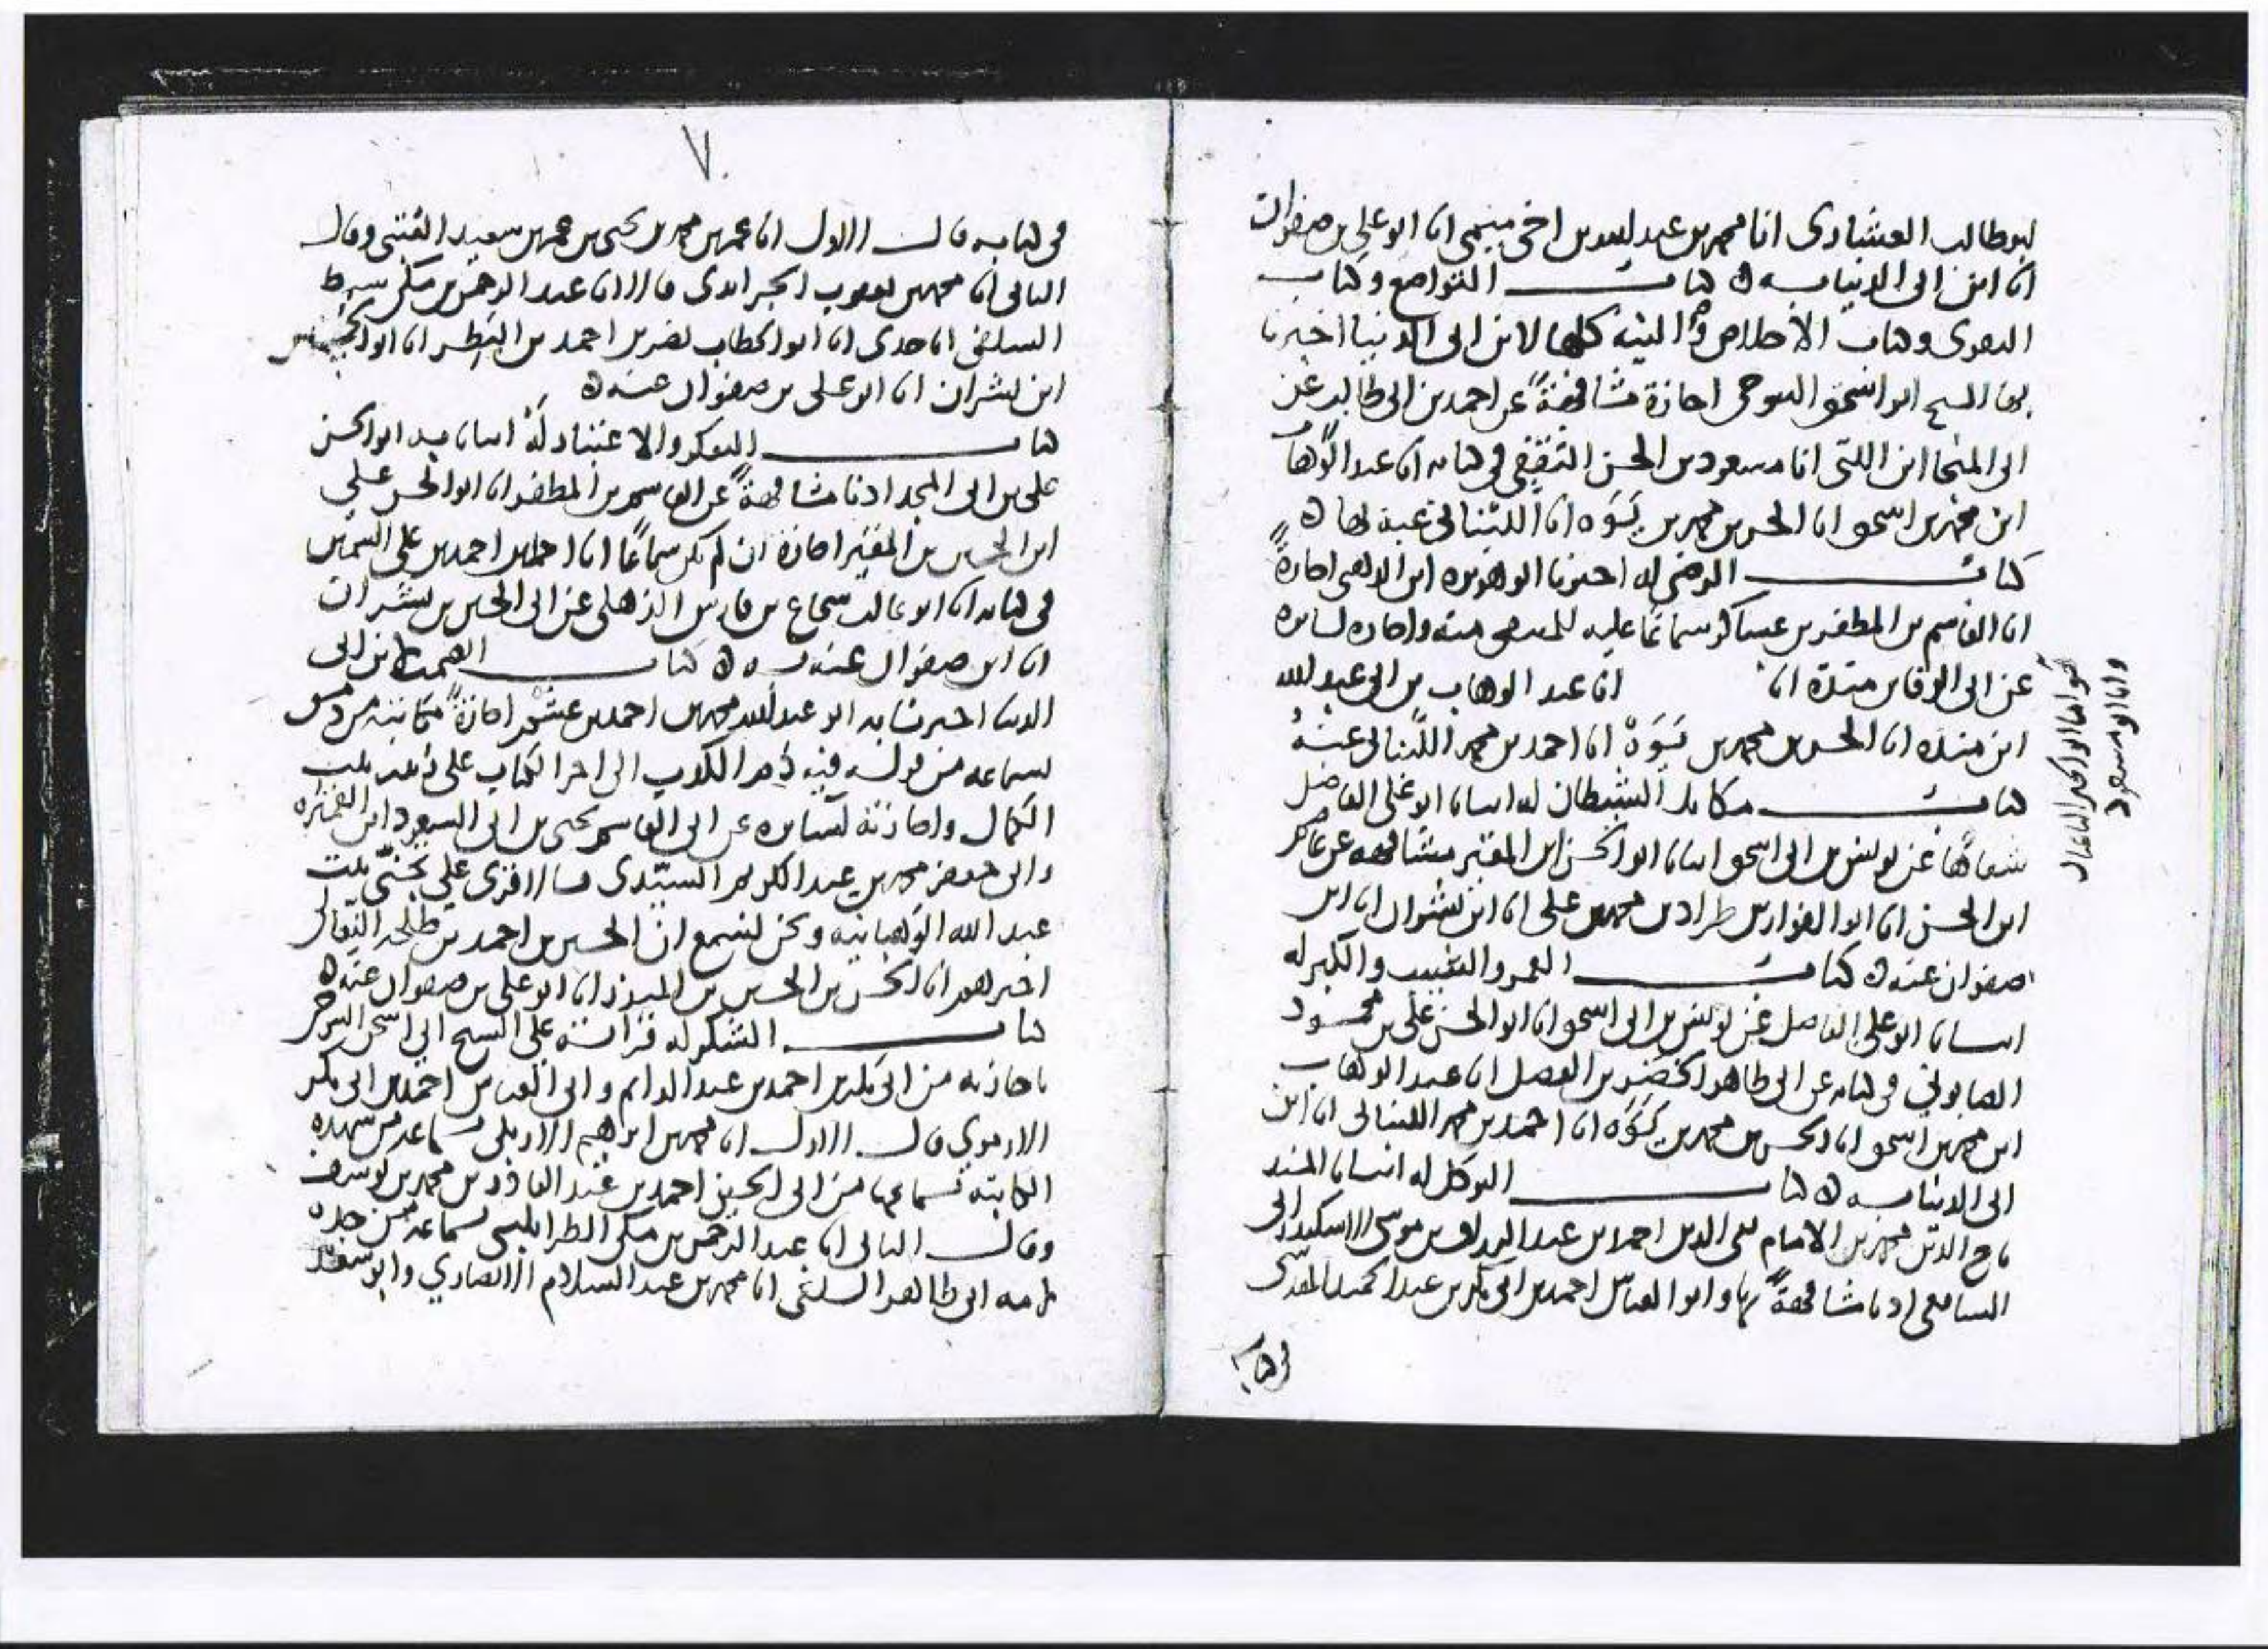 ابو طالب العشاري انا محمد بن عبد الله بن اخي ميمي انا ابو علي بن صفوان
انا ابن ابي الدنيا به ه كتاب التواضع وكتاب
التقوى وكتاب الاخلاص والنية كلها لابن ابي الدنيا اخبرنا
بها الشيخ ابو اسحق التنوخي اجازة مشافهة عن احمد بن ابي طالب عن
ابي المنجا ابن اللتي انا مسعود بن الحسن الثقفي في كتابه انا عبد الوهاب
ابن محمد بن اسحق انا الحسن بن محمد بن يَوَه انا اللنباني عنه بها ه
كتاب الرضى له اخبرنا ابو هريرة ابن الذهبي اجازةً
انا القاسم بن المظفر بن عساكر سماعًا عليه للمنتقى منه واجازة لسائره
عن ابي الوفا بن مندة انا انا عبد الوهاب بن ابي عبد الله
ابن منده انا الحسن بن محمد بن يَوَهْ انا احمد بن محمد اللنباني عنه
كتاب مكايد الشيطان له انبانا ابو علي الفاضلي
شفاهًا عن يونس بن ابي اسحق انبانا ابو الحسن ابن المقير مشافهة عن
ابن الحسن انا ابو الفوارس طراد بن محمد بن علي انا ابن بشران انا ابن
صفوان عنه ه كتاب العمر والشيب والكبر له
انبانا ابو علي الفاضلي عن يونس بن ابي اسحق انا ابو الحسن علي بن محمود
الصابوني في كتابه عن ابي طاهر الخضر بن الفضل انا عبد الوهاب
ابن محمد بن اسحق انا الحسن بن محمد بن يَوَه انا احمد بن محمد اللنباني انا ابن
ابي الدنيا به ه كتاب التوكل له انبانا المسند
تاج الدين محمد بن الامام تقي الدين احمد بن عبد الرزاق بن موسى الاسكندراني
الشافعي اذنا مشافهةً بها وابو العباس احمد بن ابي بكر بن عبد الحميد المقدسي
في كتابه
وانا ابو مسعود
في كتابه قال الاول انا عمر بن محمد بن يحيى بن عمر بن سعيد العتبي وقال
الثاني انا محمد بن يعقوب الجرايدي قالا انا عبد الرحمن بن مكي سبط
السلفي انا جدي انا ابو الخطاب نصر بن احمد بن البطر انا ابو الحسين
ابن بشران انا ابو علي بن صفوان عنه ه
كتاب التفكر والاعتبار لَهُ انبانا به ابو الحسن
علي بن ابي المجد اذنا مشافهةً عن القاسم بن المظفر انا ابو الحسن علي
ابن الحسين بن المقير اجازة ان لم يكن سماعًا انا احمد بن علي السمين
في كتابه انا ابو غالب شجاع بن فارس الذهلي عن ابي الحسين بن بشران
انا ابن صفوان عنه به ه كتاب الصمت لابن ابي
الدنيا اخبرنا به ابو عبد الله محمد بن احمد اجازةً مكاتبة من دمشق
بسماعه من قوله فيه ذم الكذب الى اخر الكتاب على زينب بنت
الكمال واجازته لسائره عن ابي القاسم يحيى بن ابي السعود ابن القميره
وابي جعفر محمد بن عبد الكريم السيّدي قالا قرئ على تجنّي بنت
عبد الله الوهبانيه ونحن نسمع ان الحسين بن احمد بن طلحة النعالي
اخبرهم انا الحسن بن الحسين بن المنذر انا ابو علي بن صفوان عنه ه
كتاب الشكر له قراته على الشيخ ابي اسحق التنوخي
باجازته من ابي بكر بن احمد بن عبد الدايم وابي العباس احمد بن ابي بكر
الارموي قال الاول انا محمد بن ابراهيم الاربلي سماعه من شهده
الكاتبه بسماعها من ابي الحسين احمد بن عبد القادر بن محمد بن يوسف
وقال الثاني انا عبد الرحمن بن مكي الطرابلسي بسماعه من جده
لامه ابي طاهر السلفي انا محمد بن عبد السلام الانصاري وابو سعد